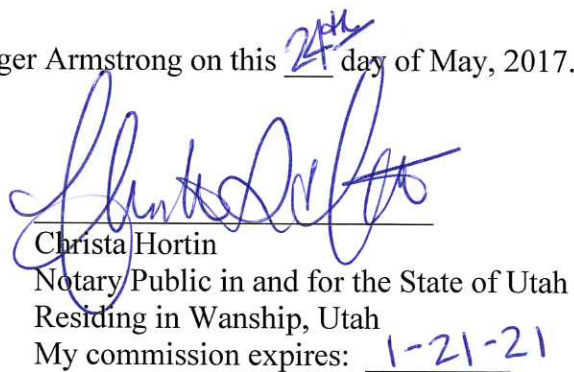 ger Armstrong on this 24th day of May, 2017.
Christa Hortin
Notary Public in and for the State of Utah
Residing in Wanship, Utah
My commission expires: 1-21-21